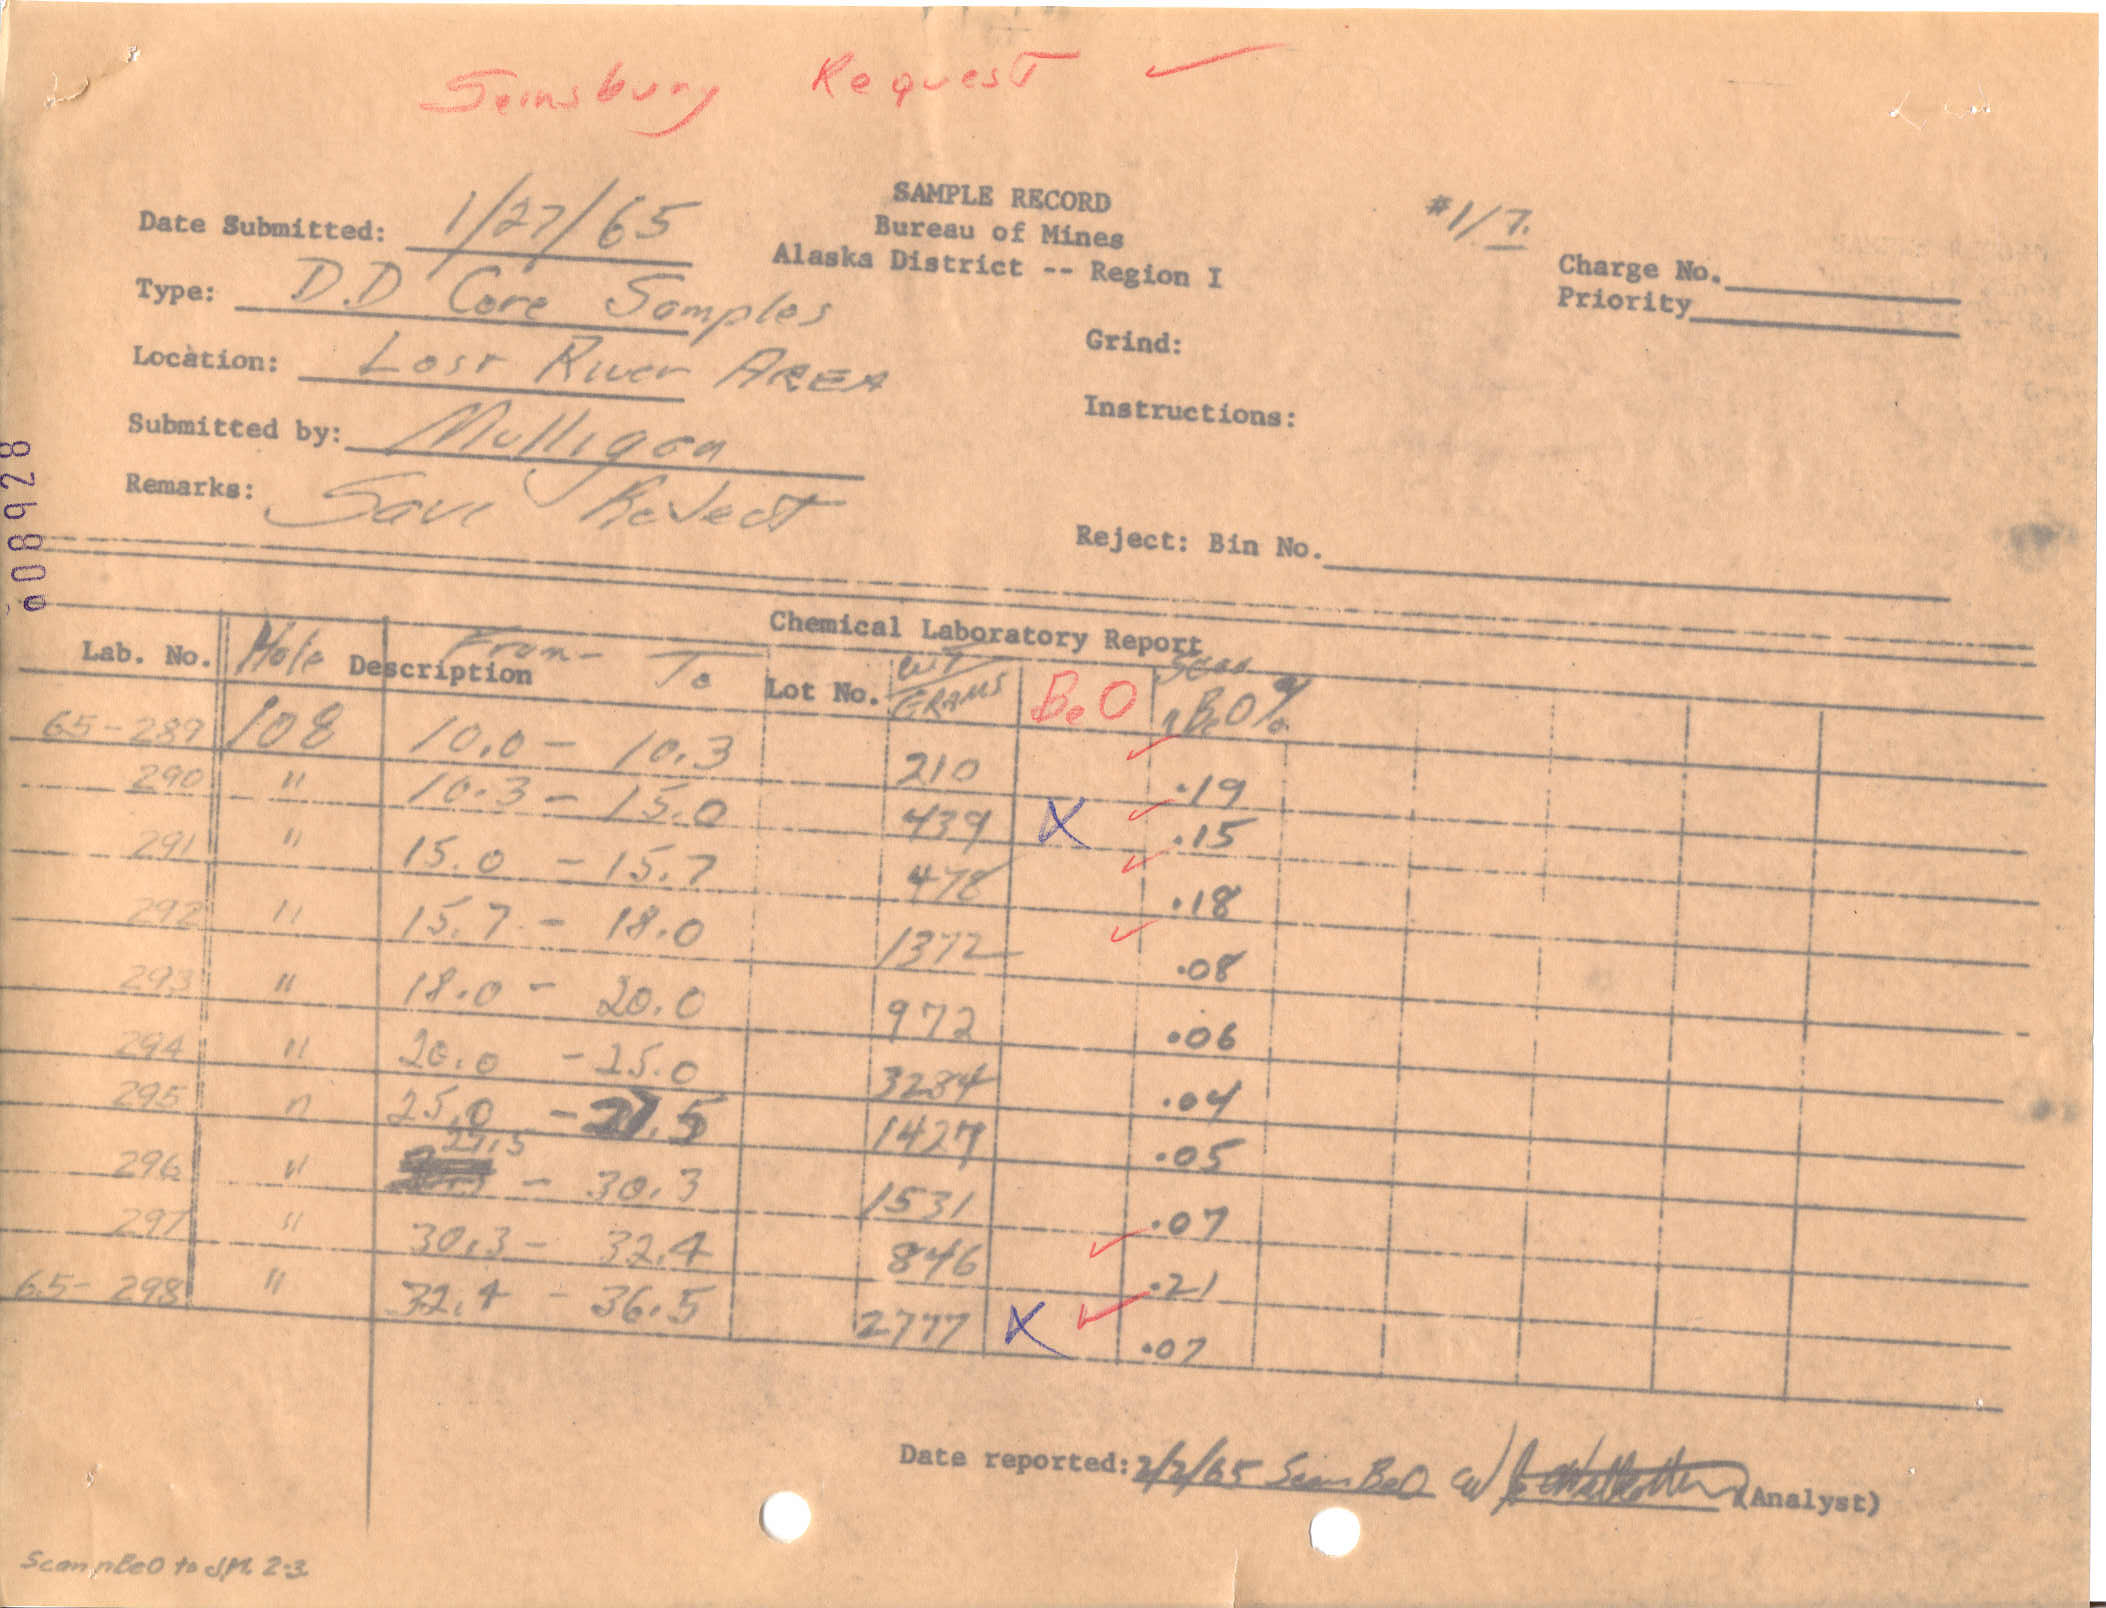 Sainsbury Request ✓
SAMPLE RECORD
Bureau of Mines
Alaska District -- Region I
#1/7.
Date Submitted: 1/27/65
Charge No.
Priority
Type: D.D Core Samples
Grind:
Location: Lost River AREA
Instructions:
Submitted by: Mulligan
Remarks: Save Reject
Reject: Bin No.
008928
Chemical Laboratory Report
Lab. No. Hole Description From - To Lot No. WT GRAMS BeO Scan nBeO%
65-289 108 10.0 - 10.3 210 ✓ .19
290 " 10.3 - 15.0 439 X ✓ .15
291 " 15.0 - 15.7 478 ✓ .18
292 " 15.7 - 18.0 1372 ✓ .08
293 " 18.0 - 20.0 972 .06
294 " 20.0 - 25.0 3284 .04
295 " 25.0 - 27.5 1427 .05
296 " 27.5 - 30.3 1531 .07
297 " 30.3 - 32.4 846 ✓ .21
65-298 " 32.4 - 36.5 2777 X ✓ .07
Date reported: 2/2/65 Scan BeO (Analyst)
Scan nBeO to JM 2-3